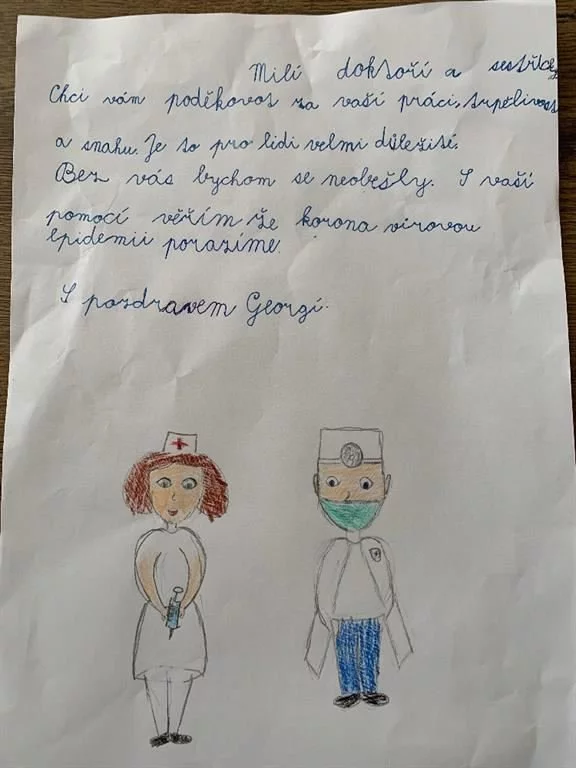 Milí doktoří a sestřičky
Chci vám poděkovat za vaší práci, trpělivost
a snahu. Je to pro lidi velmi důležité.
Bez vás bychom se neobešly. S vaší
pomocí věřím že korona virovou
epidemii porazíme.
S pozdravem Georgí.